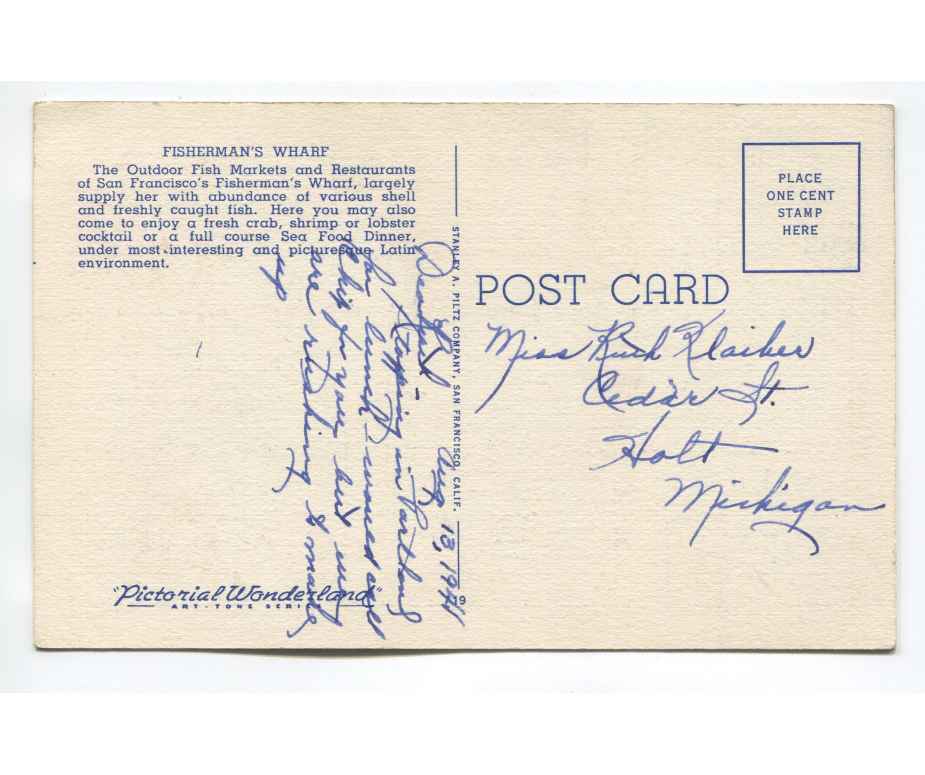 FISHERMAN'S WHARF
The Outdoor Fish Markets and Restaurants
of San Francisco's Fisherman's Wharf, largely
supply her with abundance of various shell
and freshly caught fish. Here you may also
come to enjoy a fresh crab, shrimp or lobster
cocktail or a full course Sea Food Dinner,
under most interesting and picturesque Latin
environment.
Aug 13, 1941
Dear Ruth -
Stopping in Portland
for lunch - would
ship for you but
are rushing to make
up
"Pictorial Wonderland"
ART-TONE SERIES
STANLEY A. PILTZ COMPANY, SAN FRANCISCO, CALIF.
PLACE
ONE CENT
STAMP
HERE
POST CARD
Miss Ruth Klaiber
Cedar St.
Holt
Michigan